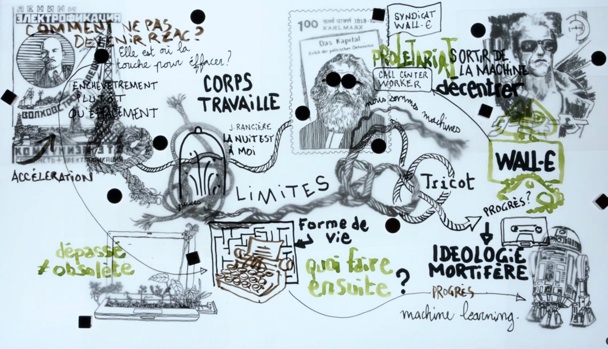 COMMENT NE PAS
DEVENIR RZAC?
ЭЛЕКТРОФИКАЦИЯ
Elle est où la
touche pour effacer?
ENCHEVÊTREMENT
PLUTÔT
QU'ÉGALEMENT
ВОЛХОВСТРОЙ
ACCÉLÉRATION
CORPS
TRAVAILLE
J. RANCIÈRE
LA NUIT EST
À MOI
100
KARL MARX
Das Kapital
SYNDICAT
WALL-E
PROLÉTARIAT
CALL CENTER
WORKER
nous sommes machines
SORTIR DE
LA MACHINE
décentrer
WALL-E
LIMITES
Tricot
PROGRÈS?
IDEOLOGIE
MORTIFÈRE
Forme de
vie
dépassé
≠ obsolète
quoi faire
ensuite?
PROGRÈS
machine learning.